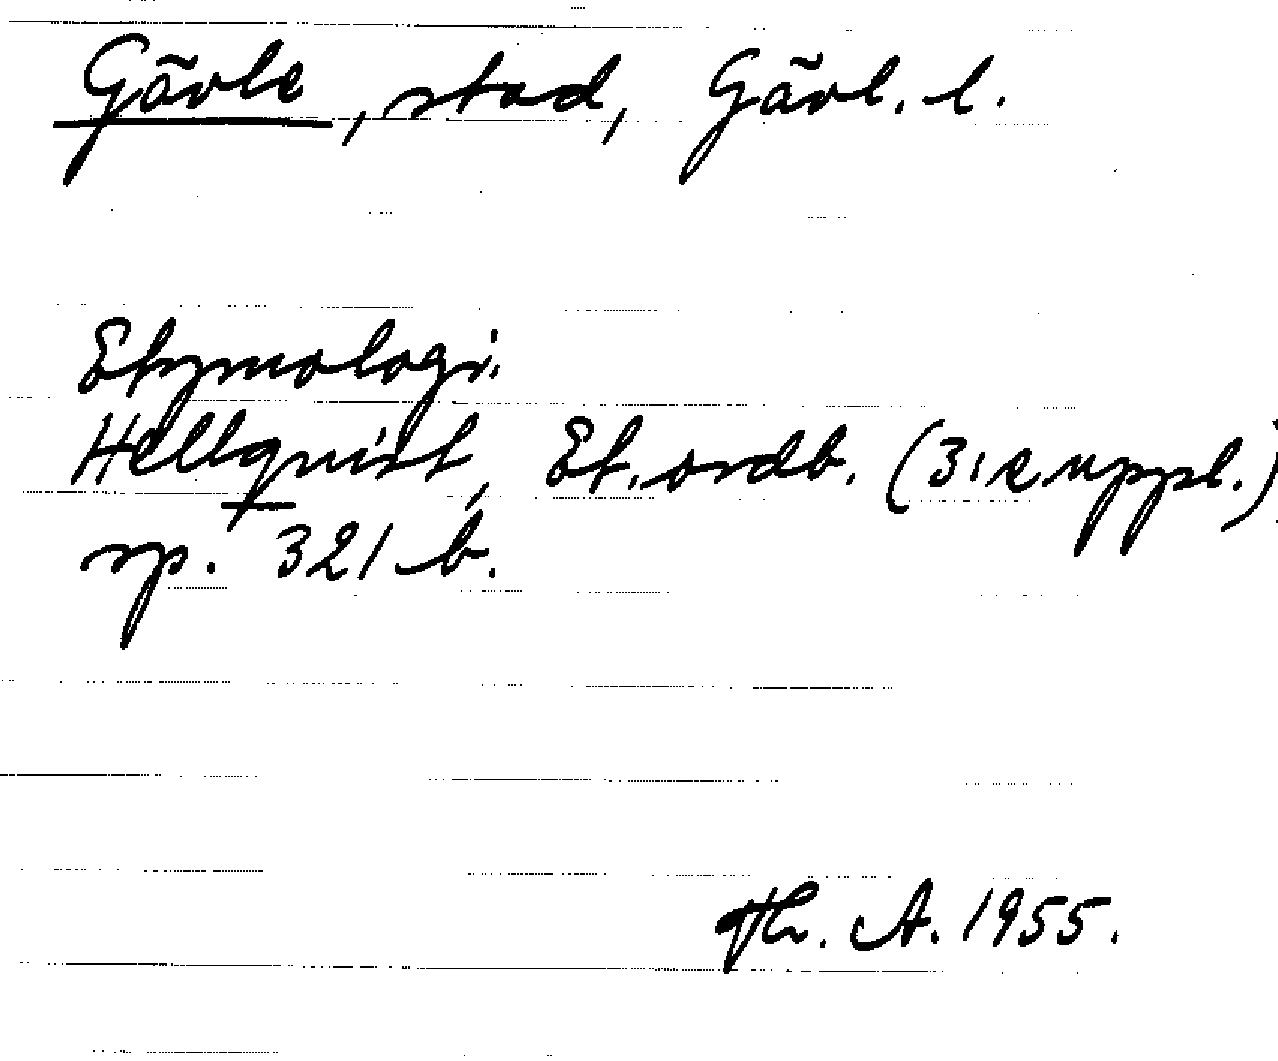 Gävle, stad, Gävl. l.
Etymologi.
Hellquist, Et. ordb. (3:e uppl.)
sp. 321 b.
Th. A. 1955.